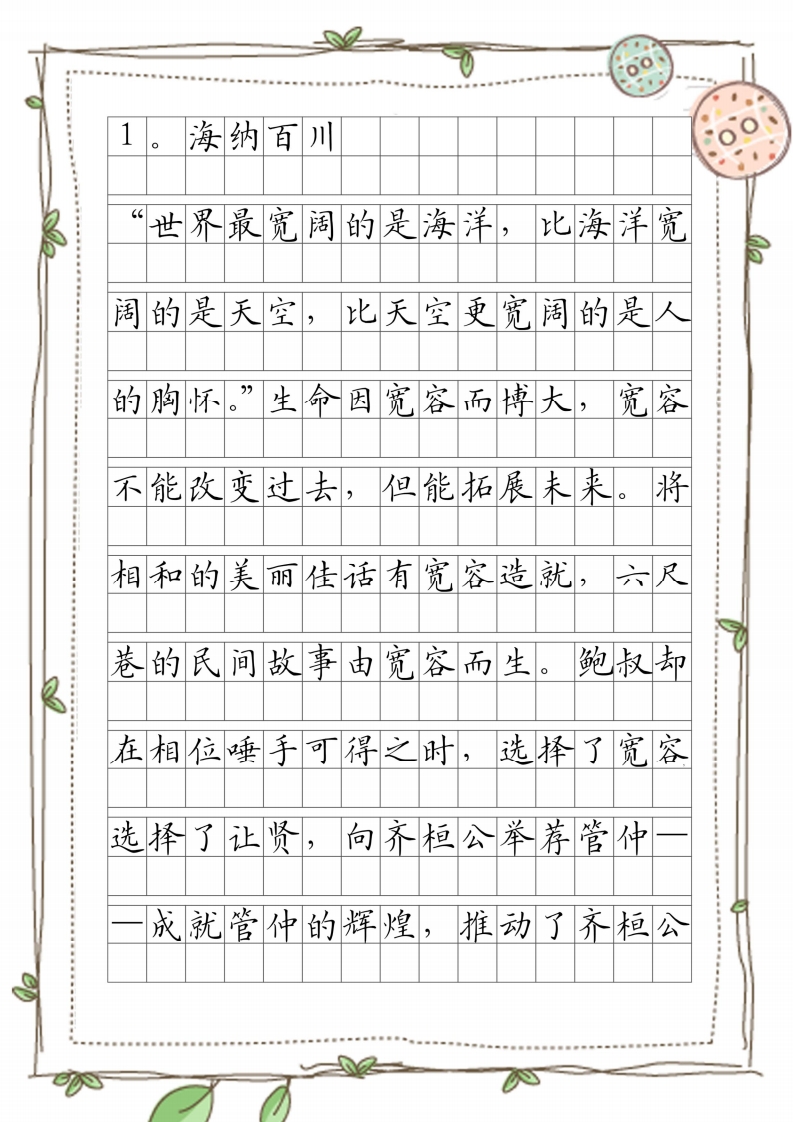 1。海纳百川
“世界最宽阔的是海洋，比海洋宽
阔的是天空，比天空更宽阔的是人
的胸怀。”生命因宽容而博大，宽容
不能改变过去，但能拓展未来。将
相和的美丽佳话有宽容造就，六尺
巷的民间故事由宽容而生。鲍叔却
在相位唾手可得之时，选择了宽容
选择了让贤，向齐桓公举荐管仲—
—成就管仲的辉煌，推动了齐桓公